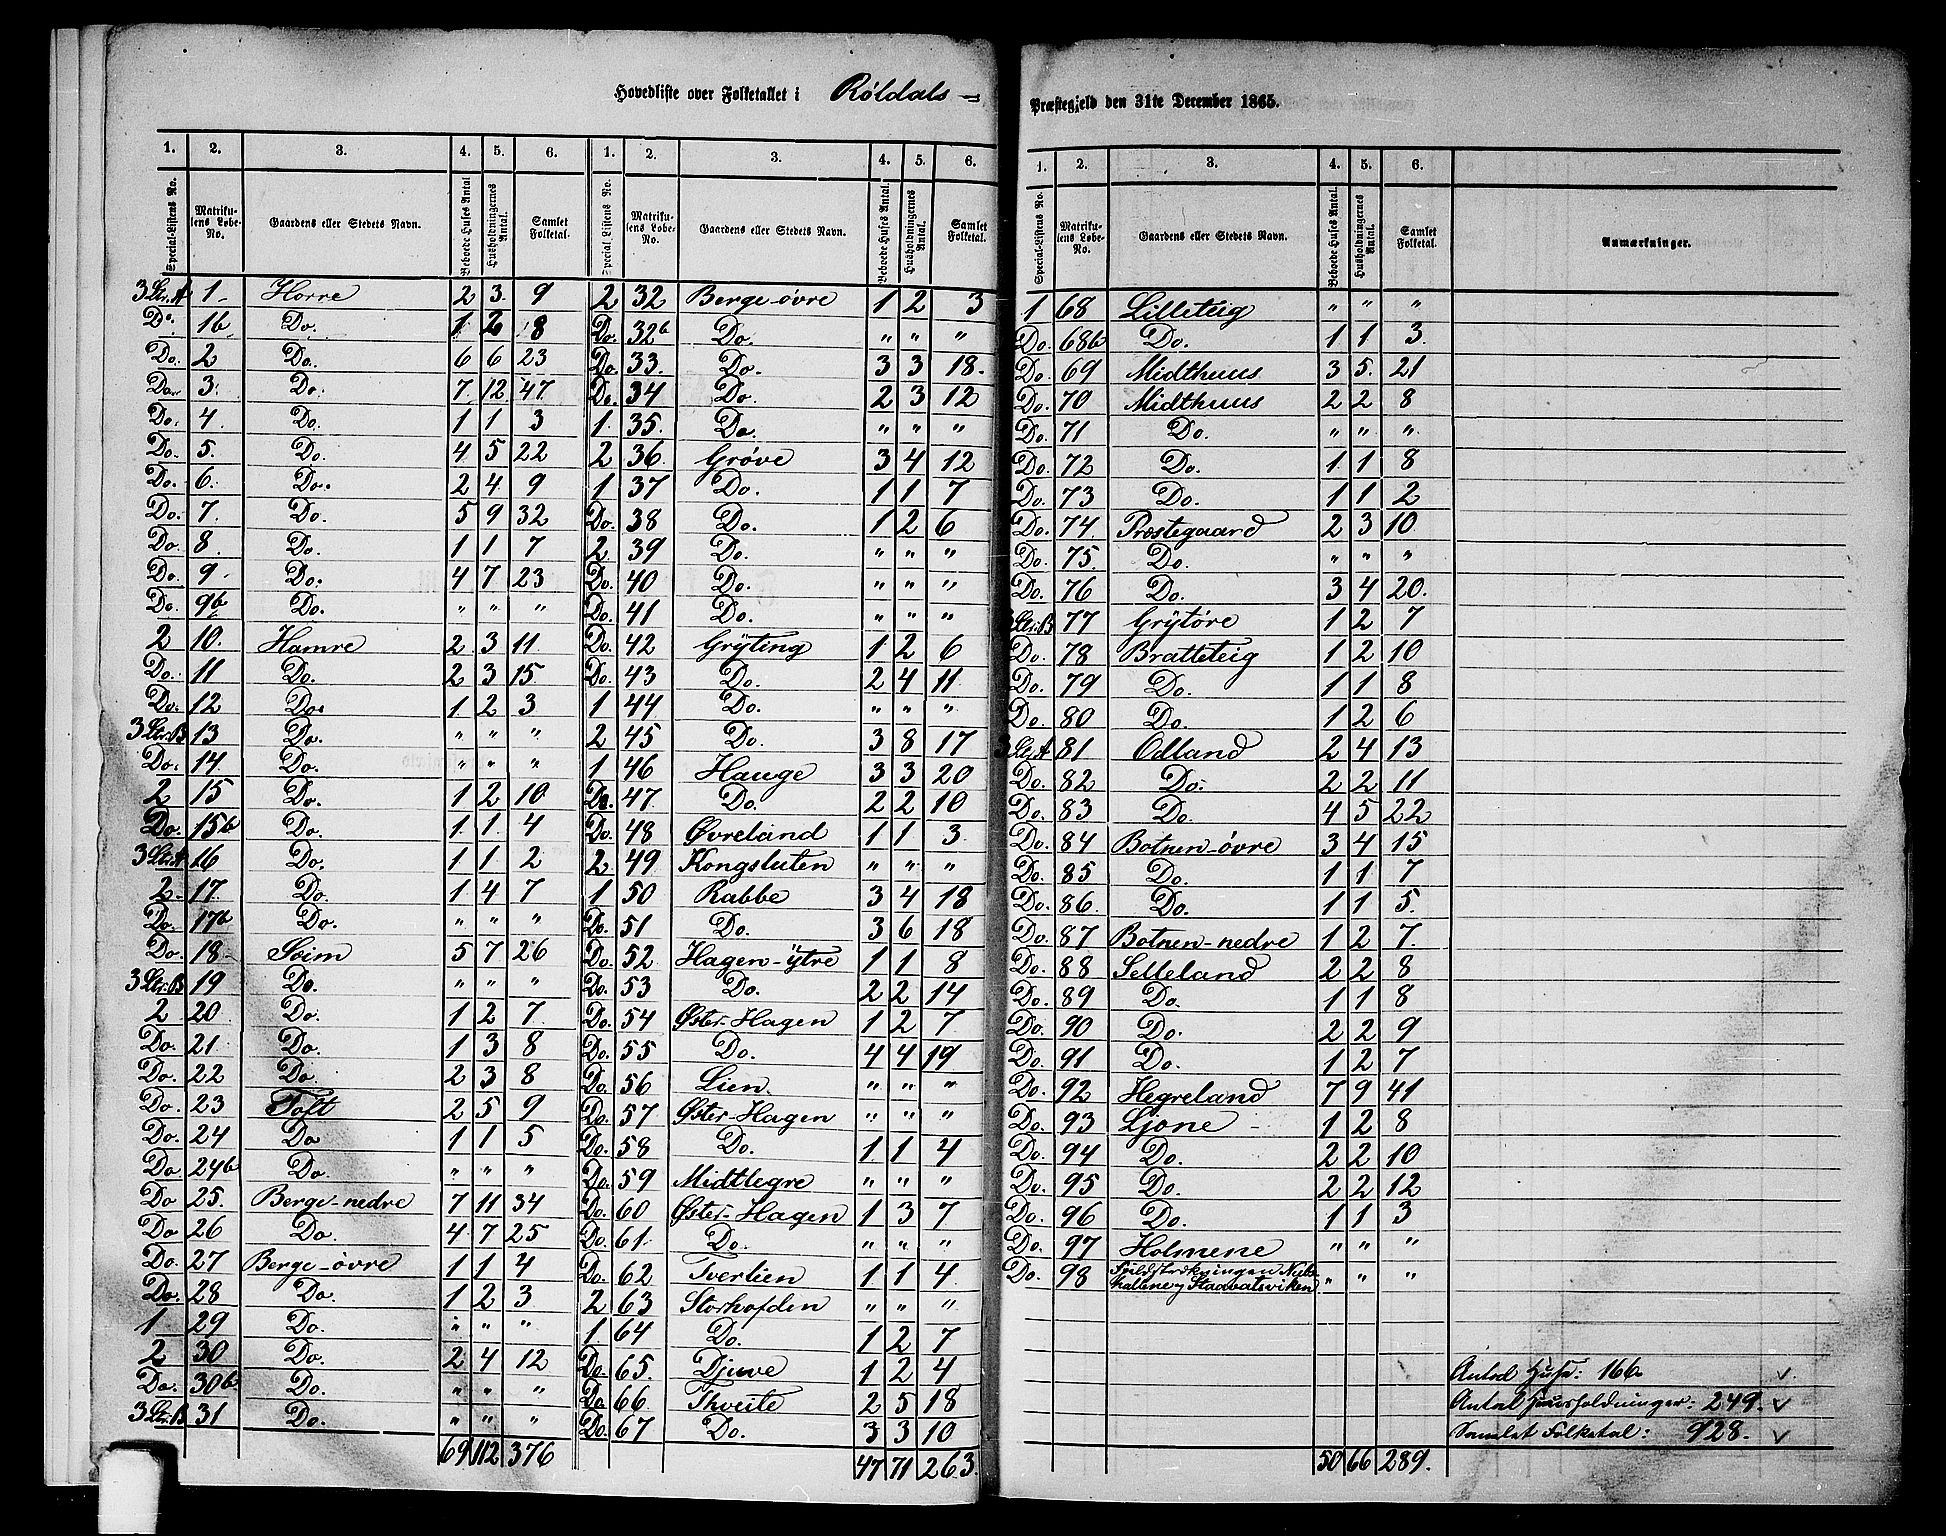 Hovedliste over Folketallet i Røldals Præstegjeld den 31te December 1865.
1. 2. 3. 4. 5. 6.
Special-Listens No. Matrikulens Løbe-No. Gaardens eller Stedets Navn. Beboede Huses Antal Husholdningernes Antal. Samlet Folketal.
3 Str. A 1 Horre 2 3 9
Do. 1b Do. 1 2 8
Do. 2 Do. 6 6 23
Do. 3 Do. 7 12 47
Do. 4 Do. 1 1 3
Do. 5. Do. 4 5 22
Do. 6. Do. 2 4 9
Do. 7. Do. 5 9 32
Do. 8. Do. 1 1 7
Do. 9 Do. 4 7 23
Do. 9b Do. " " "
2 10. Hamre 2 3 11
Do. 11 Do. 2 3 15
Do. 12 Do. 1 2 3
3 Str. B 13 Do. " " "
Do. 14 Do. " " "
2 15 Do. 1 2 10
Do. 15b Do. 1 1 4
3 Str. A 16 Do. 1 1 2
2 17. Do. 1 4 7
Do. 17b Do. " " "
Do. 18 Seim 5 7 26
3 Str. B 19 Do. " " "
2 20 Do. 1 2 7
Do. 21 Do. 1 3 8
Do. 22 Do. 2 3 8
Do. 23 Toft 2 5 9
Do. 24 Do 1 1 5
Do 24b Do. " " "
Do 25. Berge-nedre 7 11 34
Do 26 Do. 4 7 25
Do. 27 Berge-øvre 1 1 4
Do. 28 Do. 1 2 3
1 29 Do. " " "
2 30 Do. 2 4 12
Do. 30b Do. " " "
3 Str. B 31 Do. " " "
69 112 376
1. 2. 3. 4. 5. 6.
Special Listens No. Matrikulens Løbe-No. Gaardens eller Stedets Navn. Beboede Huses Antal. Husholdningernes Antal. Samlet Folketal.
2 32 Berge-øvre 1 2 3
Do. 32b Do. " " "
Do 33. Do. 3 3 18.
Do. 34 Do. 2 3 12
1. 35. Do. " " "
2 36. Grøve 3 4 12
1 37 Do. 1 1 7
Do. 38 Do. 1 2 6
2 39 Do. " " "
Do. 40 Do. " " "
Do. 41 Do. " " "
Do. 42 Gryting 1 2 6
Do. 43 Do. 2 4 11
1 44 Do. " " "
2 45 Do. 3 8 17
1 46 Hauge 3 3 20
Do. 47. Do. 2 2 10
Do. 48 Øvreland 1 1 3.
2 49 Kongsluten " " "
1 50 Rabbe 3 4 18
Do. 51 Do. 3 6 18
Do. 52 Hagen-ytre 1 1 8
Do. 53 Do. 2 2 14
Do. 54 Øster-Hagen 1 2 7
Do. 55 Do. 4 4 19
Do. 56 Lien. " " "
Do. 57 Øster-Hagen " " "
Do. 58 Do. 1 1 4
Do. 59 Midtlegre " " "
Do. 60 Øster-Hagen 1 3 7
Do. 61. Do. " " "
Do. 62 Tverlien 1 1 4
2 63 Storhofden " " "
1. 64 Do. 1 2 7
Do. 65. Djuve 1 2 4
Do. 66 Thveite 2 5 18
Do. 67 Do. 3 3 10
47 71 263.
1. 2. 3. 4. 5. 6.
Special-Listens No. Matrikulens Løbe-No. Gaardens eller Stedets Navn. Beboede Huses Antal. Husholdningernes Antal. Samlet Folketal. Anmærkninger.
1 68 Lilleteig " " "
Do. 68b Do. 1 1 3.
Do. 69 Midthuus 3 5. 21
Do. 70 Midthuus 2 2 8
Do. 71 Do. " " "
Do. 72 Do. 1 1 8
Do. 73 Do. 1 1 2
Do. 74. Præstegaard 2 3 10.
Do. 75. Do. " " "
Do. 76 Do. 3 4 20.
3 Str. B 77 Grytøre 1 2 7
Do. 78 Bratteteig 1 2 10
Do. 79 Do. 1 1 8
Do. 80 Do. 1 2 6
3 Str. A 81 Odland 2 4 13
Do. 82 Do. 2 2 11
Do. 83 Do. 4 5 22
Do. 84 Botnen-øvre 3 4 15
Do. 85 Do. 1 1 7
Do. 86. Do. 1 1 5.
Do. 87 Botnen-nedre 1 2 7.
Do. 88 Selleland 2 2 8
Do. 89 Do. 1 1 8
Do. 90 Do. 2 2 9
Do. 91 Do. 1 2 7
Do. 92 Hegreland 7 9 41
Do. 93 Ljone 1 2 8
Do. 94 Do. 2 2 10
Do. 95 Do. 2 2 12
Do. 96 Do. 1 1 3
Do. 97 Holmene " " "
Do. 98 Staavatsviken " " "
50 66 289.
Antal Huse: 166
Antal Huusholdninger: 249.
Samlet Folketal: 928.